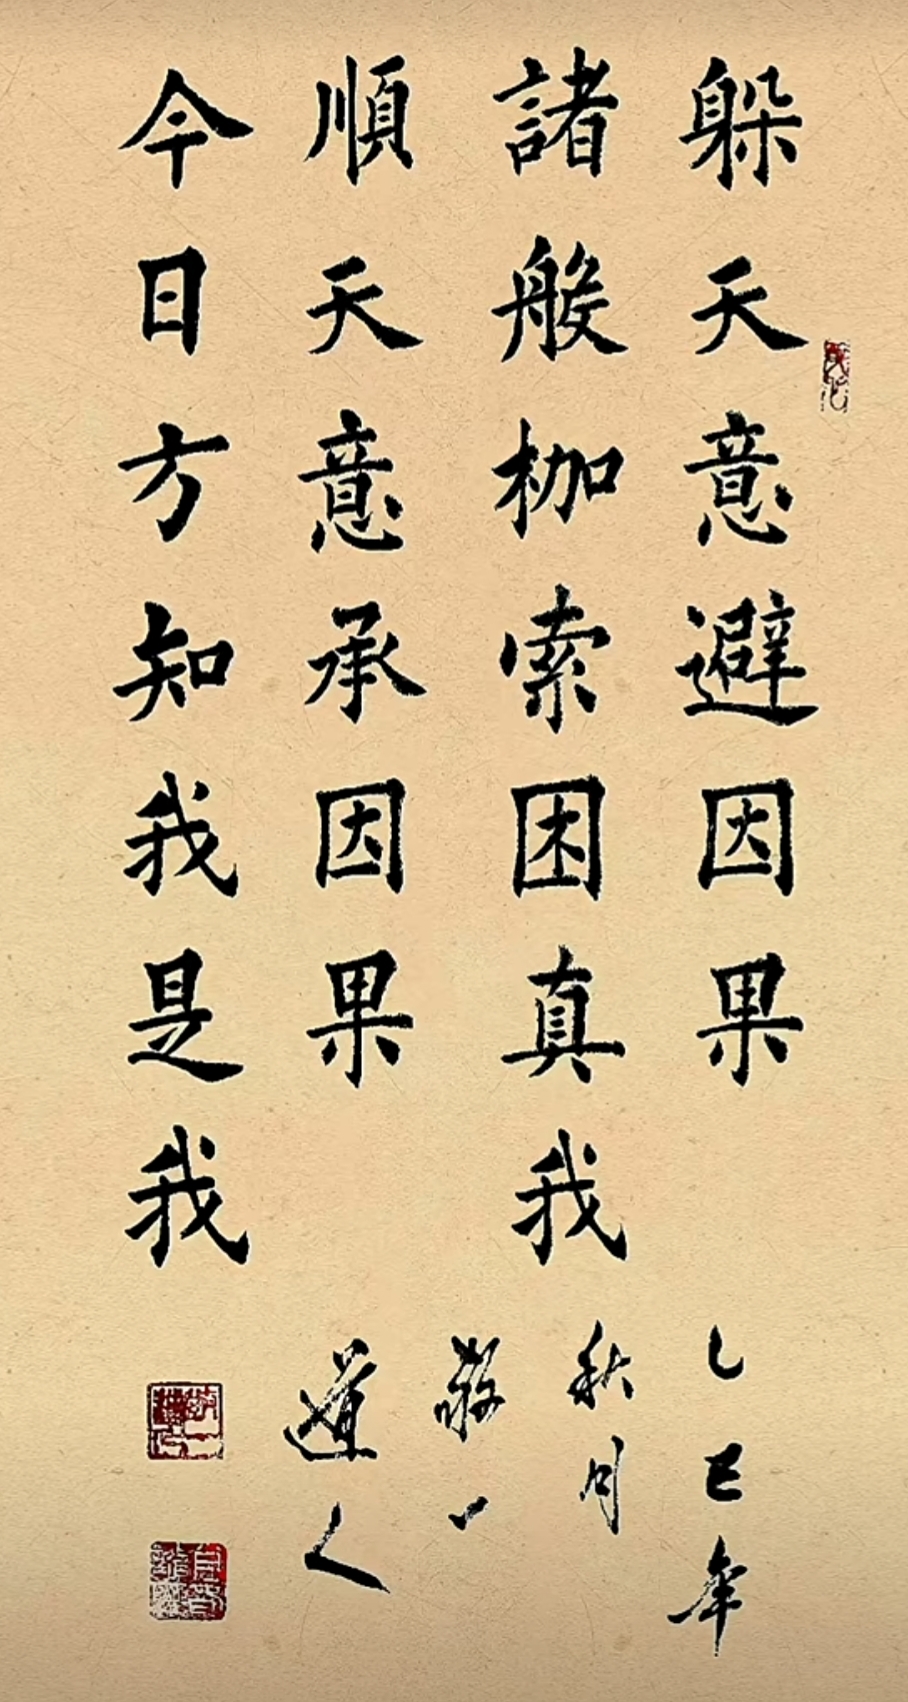 躲天意避因果
諸般枷索困真我
順天意承因果
今日方知我是我
乙巳年
秋月
敬一
道人